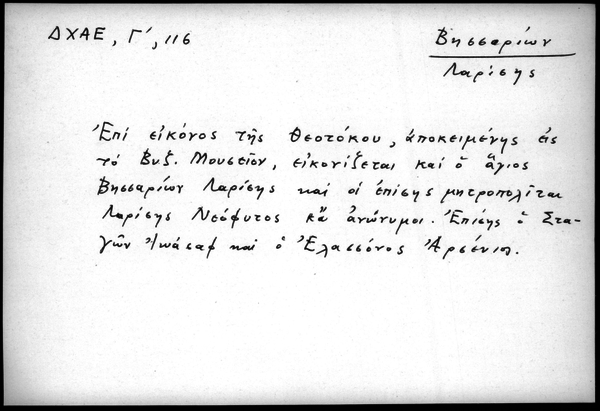 ΔΧΑΕ, Γ´, 116
Βησσαρίων
Λαρίσης
Ἐπί εἰκόνος τῆς Θεοτόκου, ἀποκειμένης εἰς
τό Βυζ. Μουσεῖον, εἰκονίζεται καί ὁ ἅγιος
Βησσαρίων Λαρίσης καί οἱ ἐπίσης μητροπολῖται
Λαρίσης Νεόφυτος κἄ ἀνώνυμοι. Ἐπίσης ὁ Στα-
γῶν Ἰωάσαφ καί ὁ Ἐλασσόνος Ἀρσένιος.